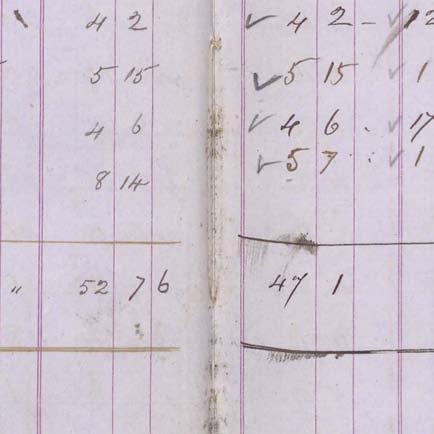 4 2
5 15
4 6
8 14
" 52 7 6
✓ 4 2 – ✓ 12
✓ 5 15 ✓ 1
✓ 4 6 . ✓ 17
✓ 5 7 : ✓ 1
47 1